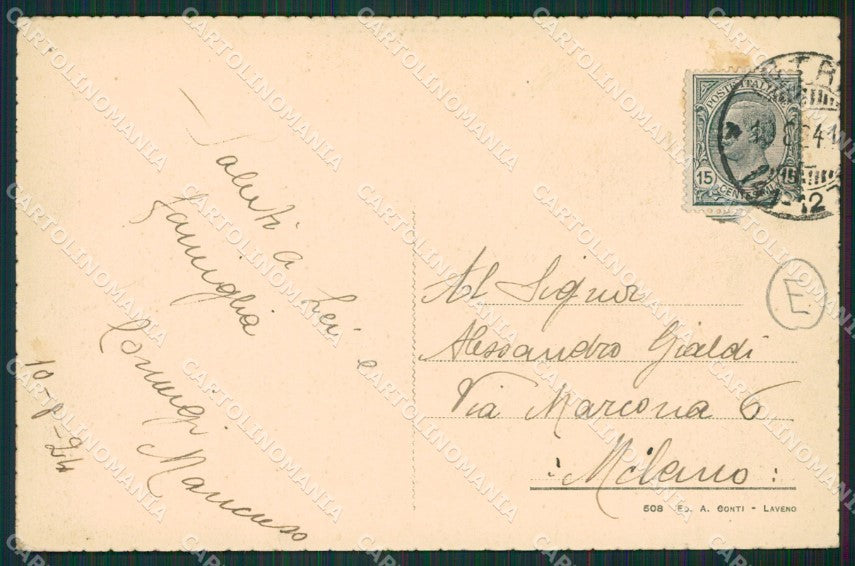 Saluti a Lei e
famiglia
Coniugi Mancuso
10-8-24
POSTE ITALIANE
15 CENT. 15
10 8 24
Al Signor
Alessandro Gialdi
Via Marcona 6
Milano
508 Ed. A. Conti - Laveno
E
CARTOLINOMANIA